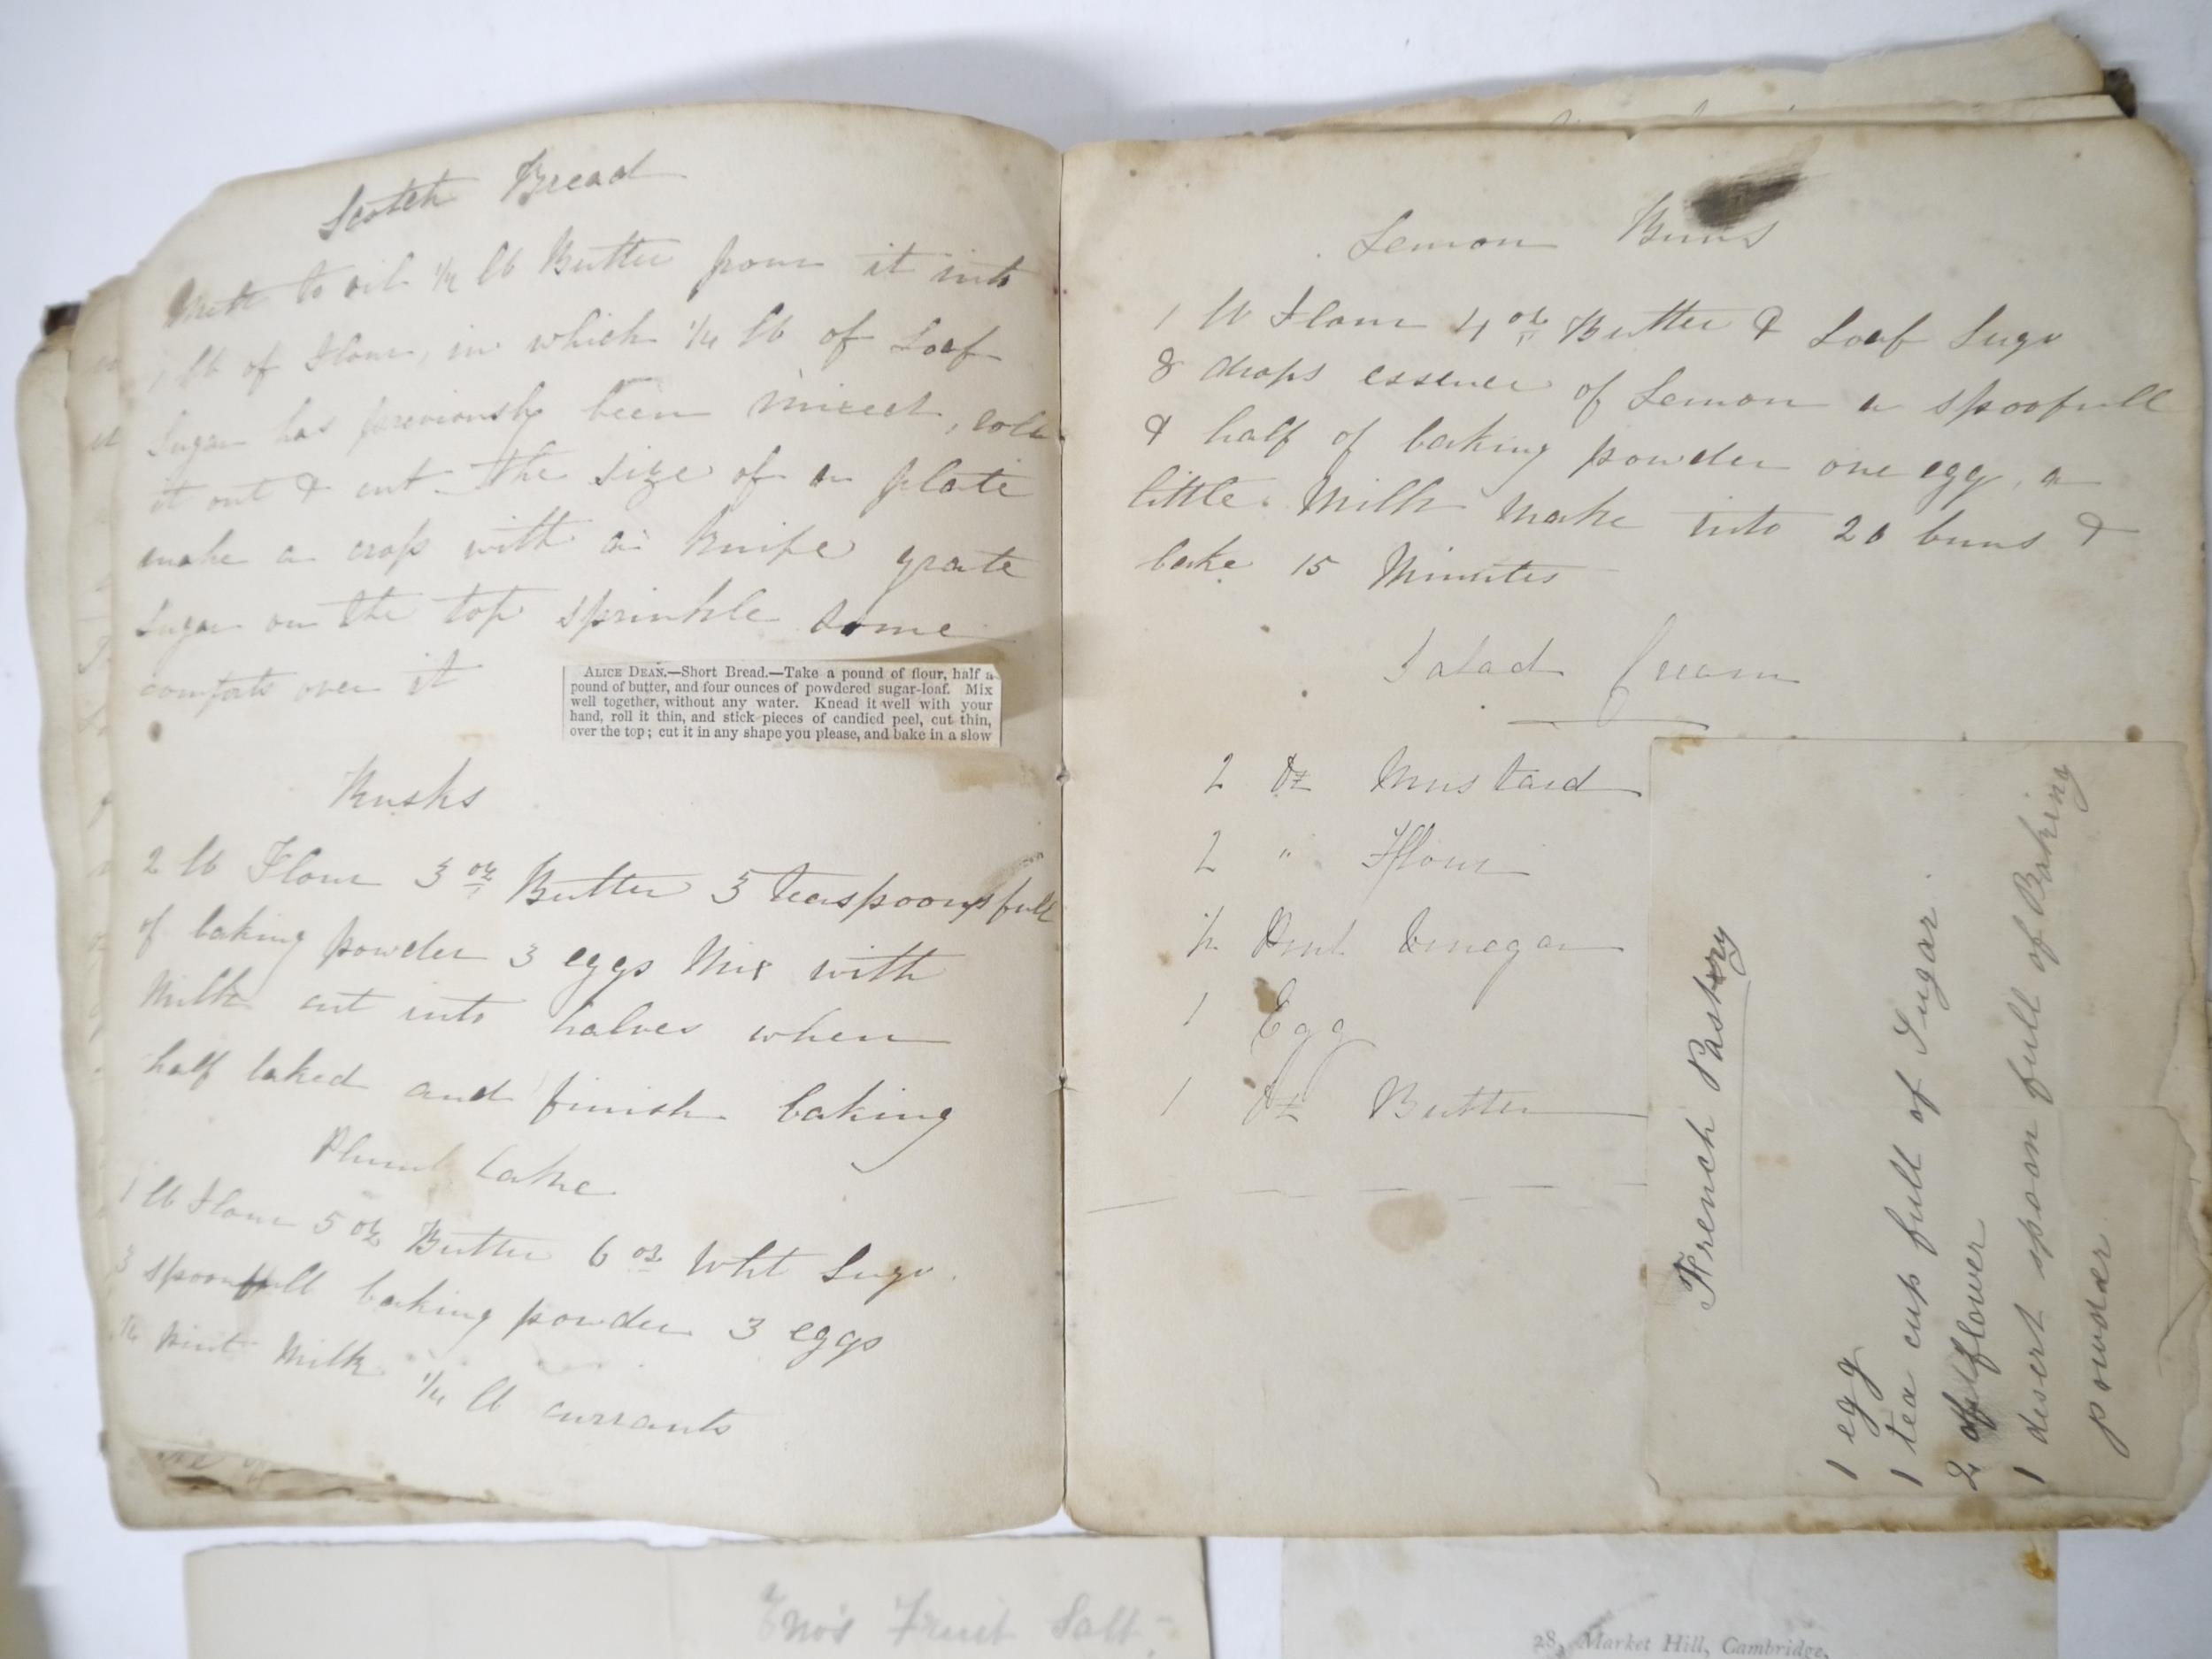 Scotch Bread
Melt to oil ½ lb Butter pour it into
1 lb of Flour, in which ¼ lb of Loaf
Sugar has previously been mixed, roll
it out & cut the size of a plate
make a crop with a Knife grate
Sugar on the top sprinkle some
comfots over it
ALICE DEAN.—Short Bread.—Take a pound of flour, half a
pound of butter, and four ounces of powdered sugar-loaf. Mix
well together, without any water. Knead it well with your
hand, roll it thin, and stick pieces of candied peel, cut thin,
over the top; cut it in any shape you please, and bake in a slow
Rusks
2 lb Flour 3 oz Butter 5 teaspoonsfull
of baking powder 3 eggs Mix with
Milk cut into halves when
half baked and finish baking
Plumb Cake
1 lb Flour 5 oz Butter 6 oz Wht Sugr
3 spoonfull baking powder 3 eggs
pint Milk ¼ lb currants
Lemon Buns
1 lb Flour 4 oz Butter & Loaf Sugr
8 drops essence of Lemon a spoofull
& half of baking powder one egg, a
little Milk Make into 20 buns &
bake 15 Minutes
Salad Cream
2 Oz Mustard
2 " Flour
½ Pint Vinegar
1 Egg
1 Oz Butter
French Pastry
1 egg
1 tea cup full of Sugar
2 of flower
1 desert spoon full of Baking
powder
Eno's Fruit Salt
28, Market Hill, Cambridge,